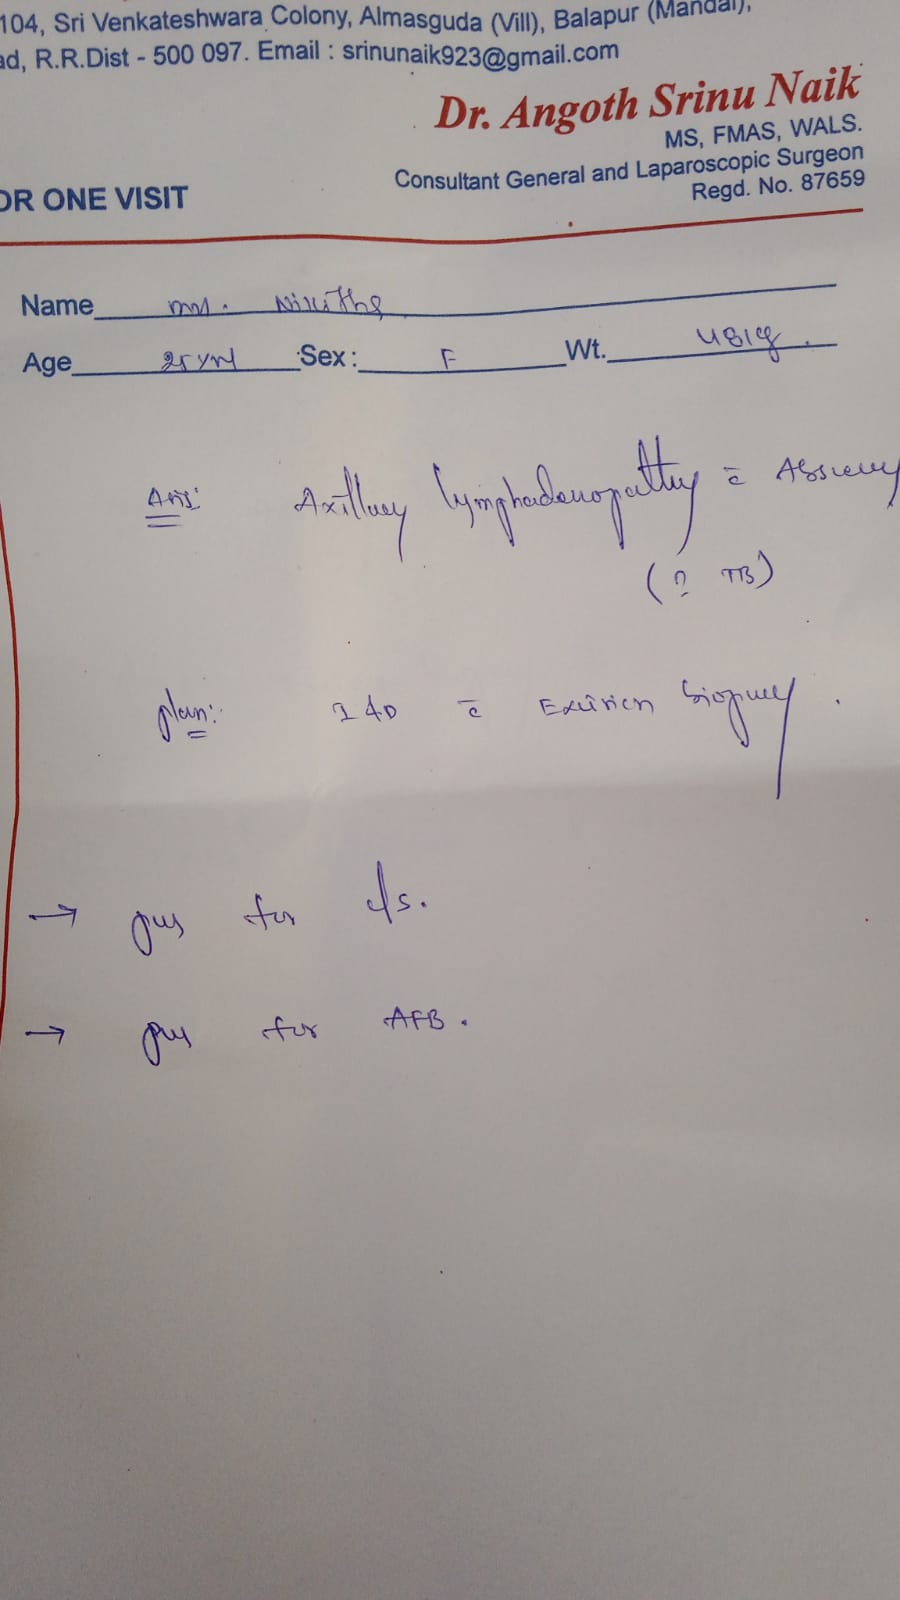 104, Sri Venkateshwara Colony, Almasguda (Vill), Balapur (Mandal),
ad, R.R.Dist - 500 097. Email : srinunaik923@gmail.com
Dr. Angoth Srinu Naik
MS, FMAS, WALS.
Consultant General and Laparoscopic Surgeon
Regd. No. 87659
OR ONE VISIT
Name
Age 25 yrs Sex: F Wt. 48kg.
Axillary lymphadenopathy c̄
(? TB)
plan: I & D c̄ Excision biopsy.
→ pus for c/s.
→ pus for AFB.